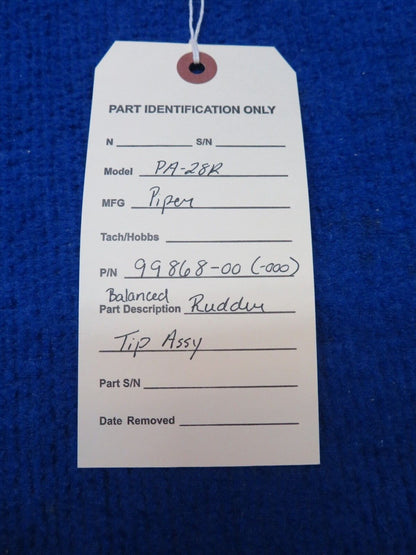 PART IDENTIFICATION ONLY
N S/N
Model PA-28R
MFG Piper
Tach/Hobbs
P/N 99868-00 (-000)
Balanced
Part Description Rudder
Tip Assy
Part S/N
Date Removed